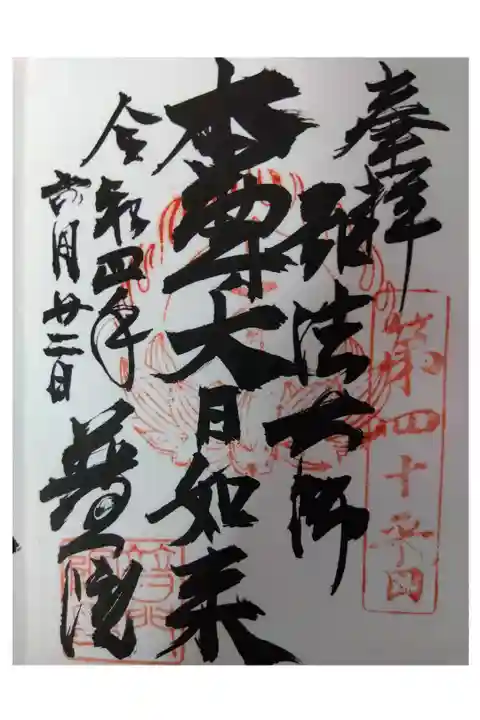 奉拝
第四十番
弘法大師
本尊大日如来
令和四年
六月廿二日
普門院